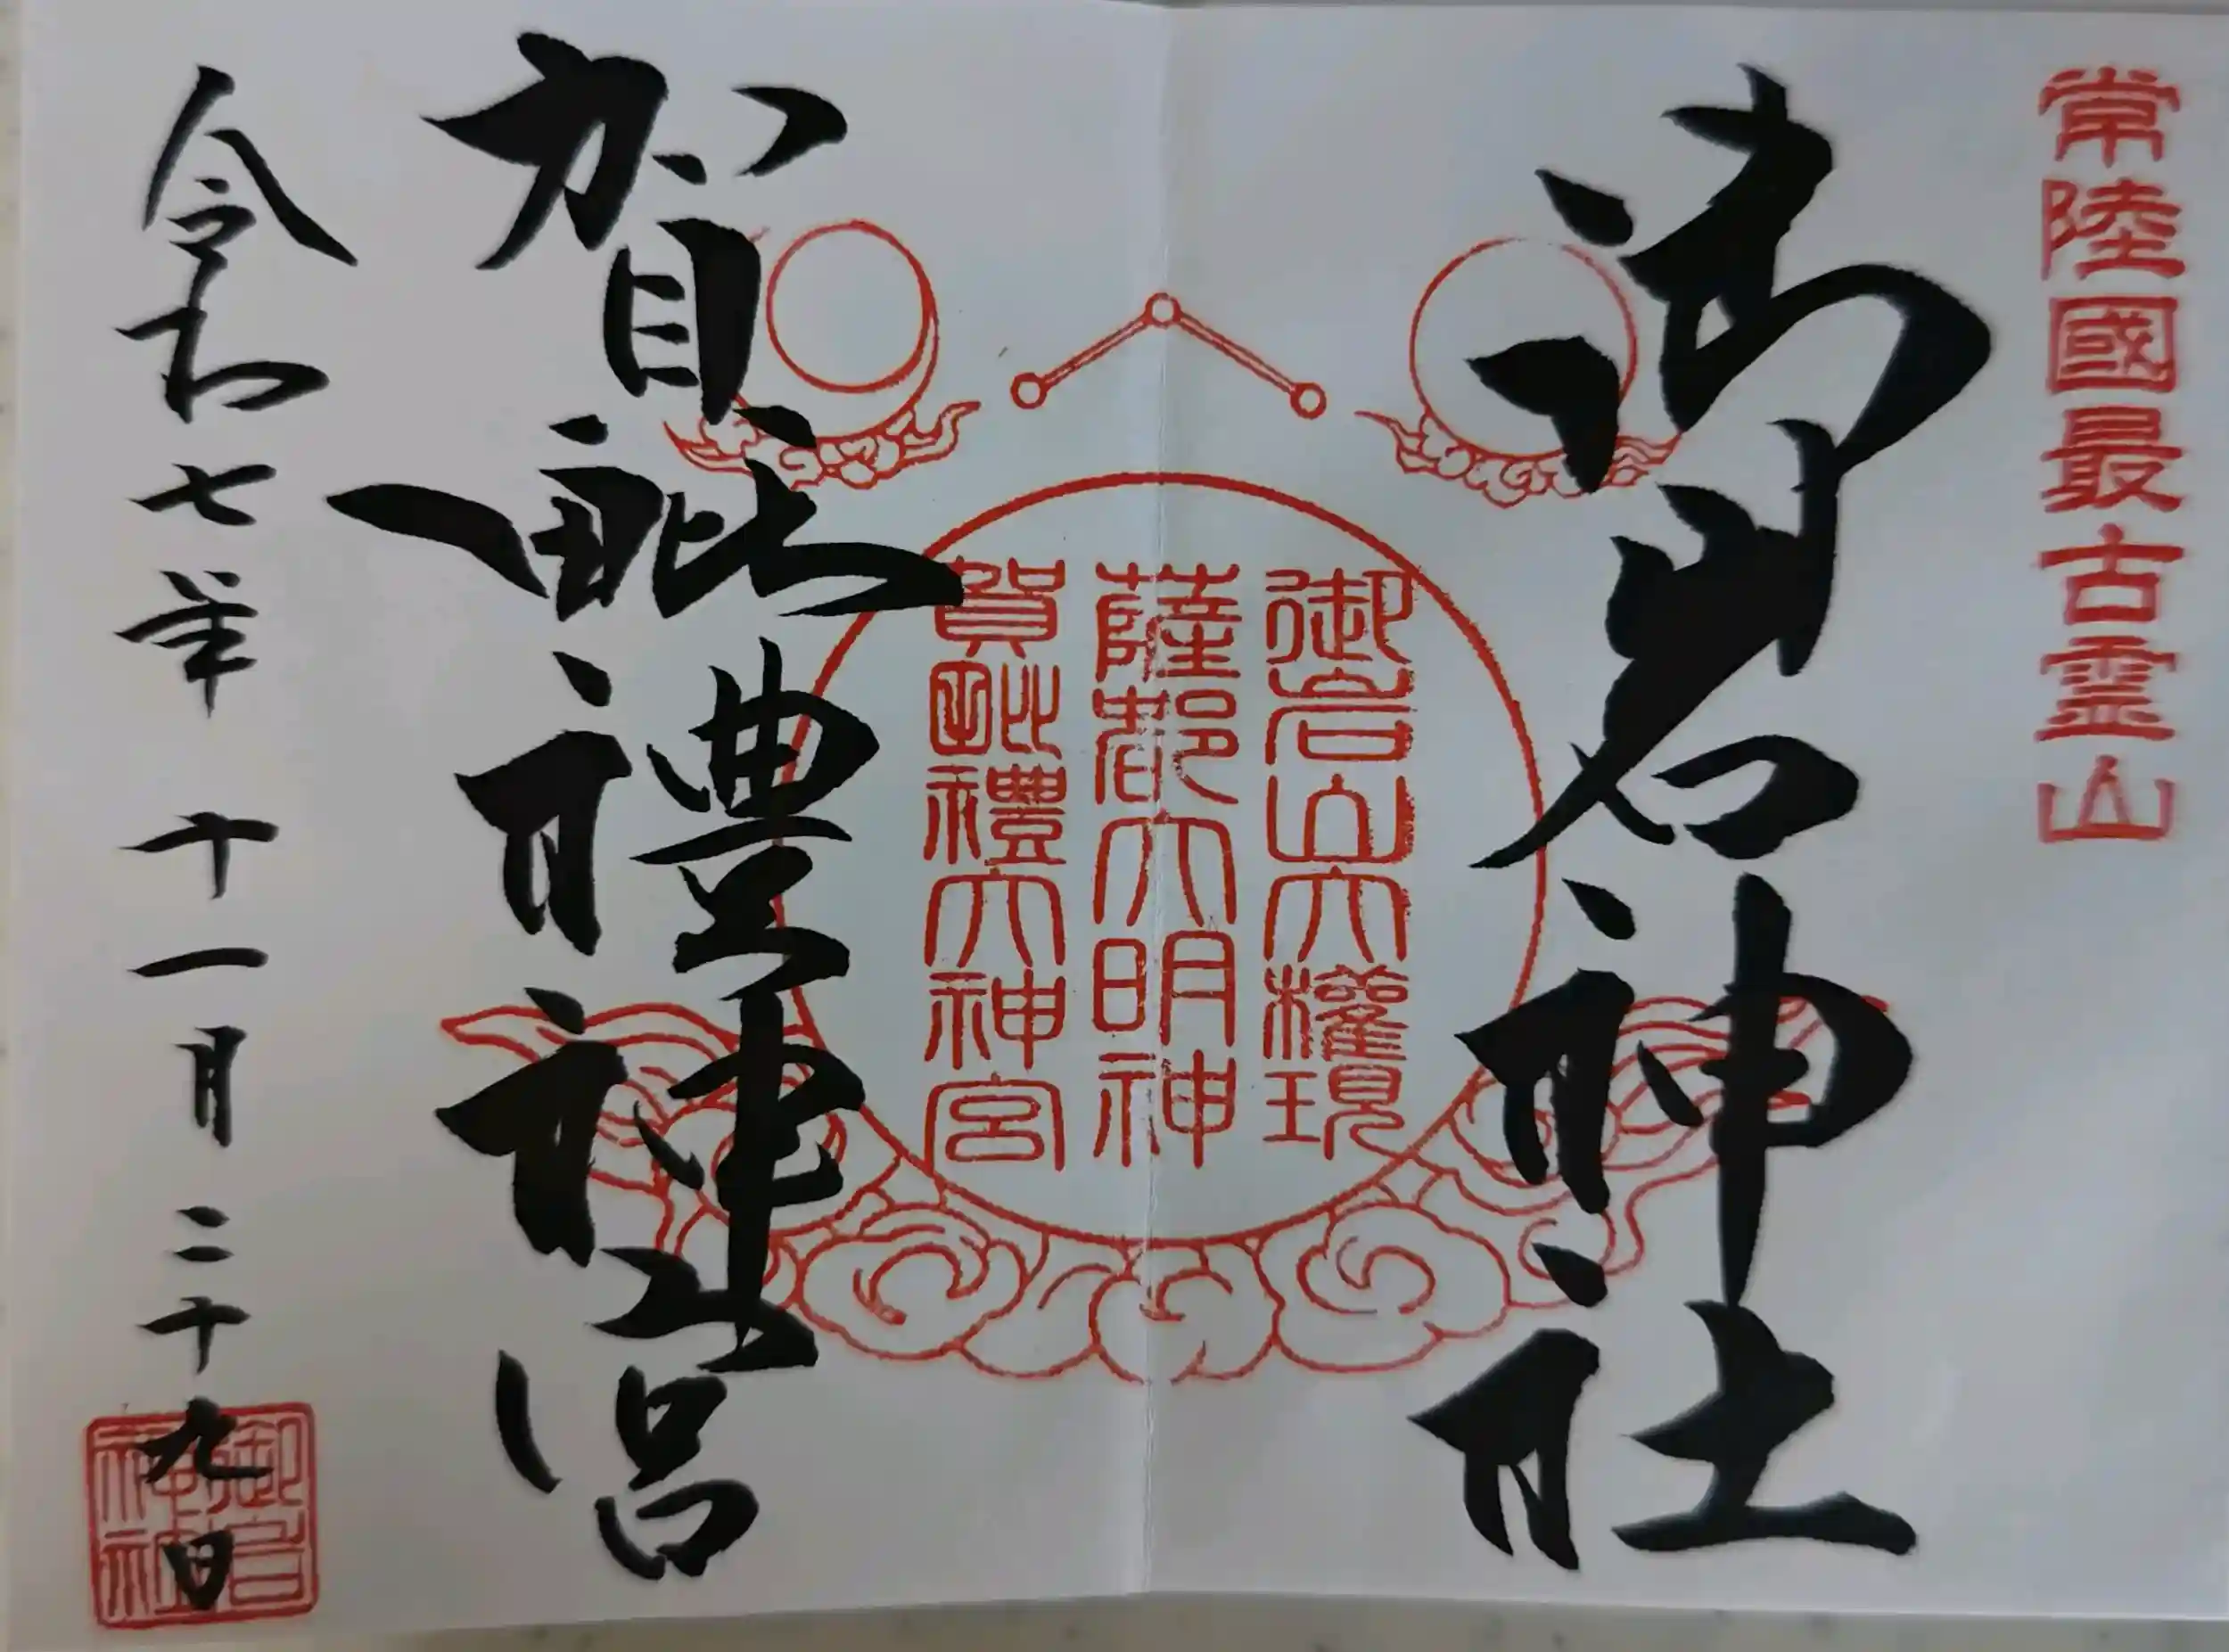 常陸國最古霊山
御岩神社
御岩山大権現
薩都大明神
賀毗禮大神宮
賀毗禮神宮
令和七年 十一月 二十九日
御岩神社